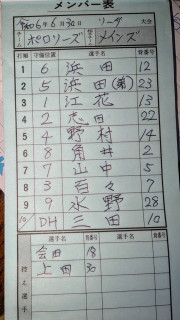 メンバー表
令和6年6月30日 リーグ 大会
チーム ポロリーズ チーム メインズ
打順 守備位置 選手名 背番号
1 6 浜田 12
2 5 浜田(弟) 23
3 1 江花 13
4 2 志田 22
5 4 野村 14
6 8 角井 2
7 7 山中 5
8 3 百々 7
9 9 水野 28
10 DH 三田 10
控え選手
選手名 背番号 選手名 背番号
会田 18
上田 30